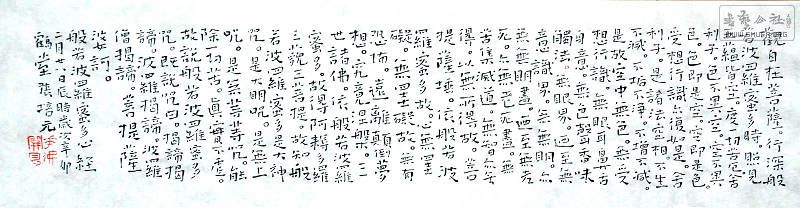 觀自在菩薩。行深般
若波羅蜜多時。照見
五蘊皆空。度一切苦厄。舍
利子。色不異空。空不異
色。色即是空。空即是色。
受想行識。亦復如是。舍
利子。是諸法空相。不生
不滅。不垢不淨。不增不減。
是故空中無色。無受
想行識。無眼耳鼻舌
身意。無色聲香味
觸法。無眼界。乃至無
意識界。無無明。亦
無無明盡。乃至無老
死。亦無老死盡。無
苦集滅道。無智亦無
得。以無所得故。菩
提薩埵。依般若波
羅蜜多故。心無罣
礙。無罣礙故。無有
恐怖。遠離顛倒夢
想。究竟涅槃。三
世諸佛。依般若波羅
蜜多。故得阿耨多羅
三藐三菩提。故知般
若波羅蜜多。是大神
咒。是大明咒。是無上
咒。是無等等咒。能
除一切苦。真實不虛。
故說般若波羅蜜多
咒。即說咒曰。揭諦揭
諦。波羅揭諦。波羅
僧揭諦。菩提薩
婆訶。
般若波羅蜜多心經
辰時歲次辛卯
鶴堂張培元